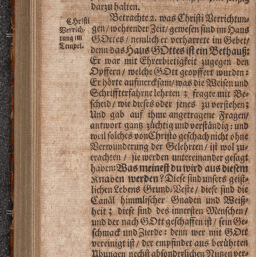 darzu halten.
Betrachte 2. was Christi Verrichtun-
Christi
Verrich-
tung im
Tempel.
gen / wehrender Zeit / gewesen sind im Haus
GOttes / nemlich er verharrete im Gebet /
denn das Haus GOttes ist ein Bethauß:
Er war mit Ehrerbietigkeit zugegen den
Opffern / welche GOtt geopffert wurden:
Er hörte aufmercksam / was die Weisen und
Schriffterfahrne lehren ; fragte mit Be-
scheid / wie dieses oder jenes zu verstehen;
Und gab auf ihne angetragene Fragen /
antwort gantz züchtig und verständig; und
weil solches von Christo geschach nicht ohne
Verwunderung der Gelehrten / ist wol zu-
erachten / sie werden untereinander gesagt
haben: Was meinest du wird aus diesem
Knaben werden? Diese sind unsers geist-
lichen Lebens Grund-Veste / diese sind die
Canäl himmlischer Gnaden und Weiß-
heit ; diese sind des innersten Menschen /
und der nach GOtt geschaffen ist / sein Ge-
schmack und Zierde: denn wer mit GOtt
vereinigt ist / der empfindet aus berührten
Ubungen nechst absonderlichen